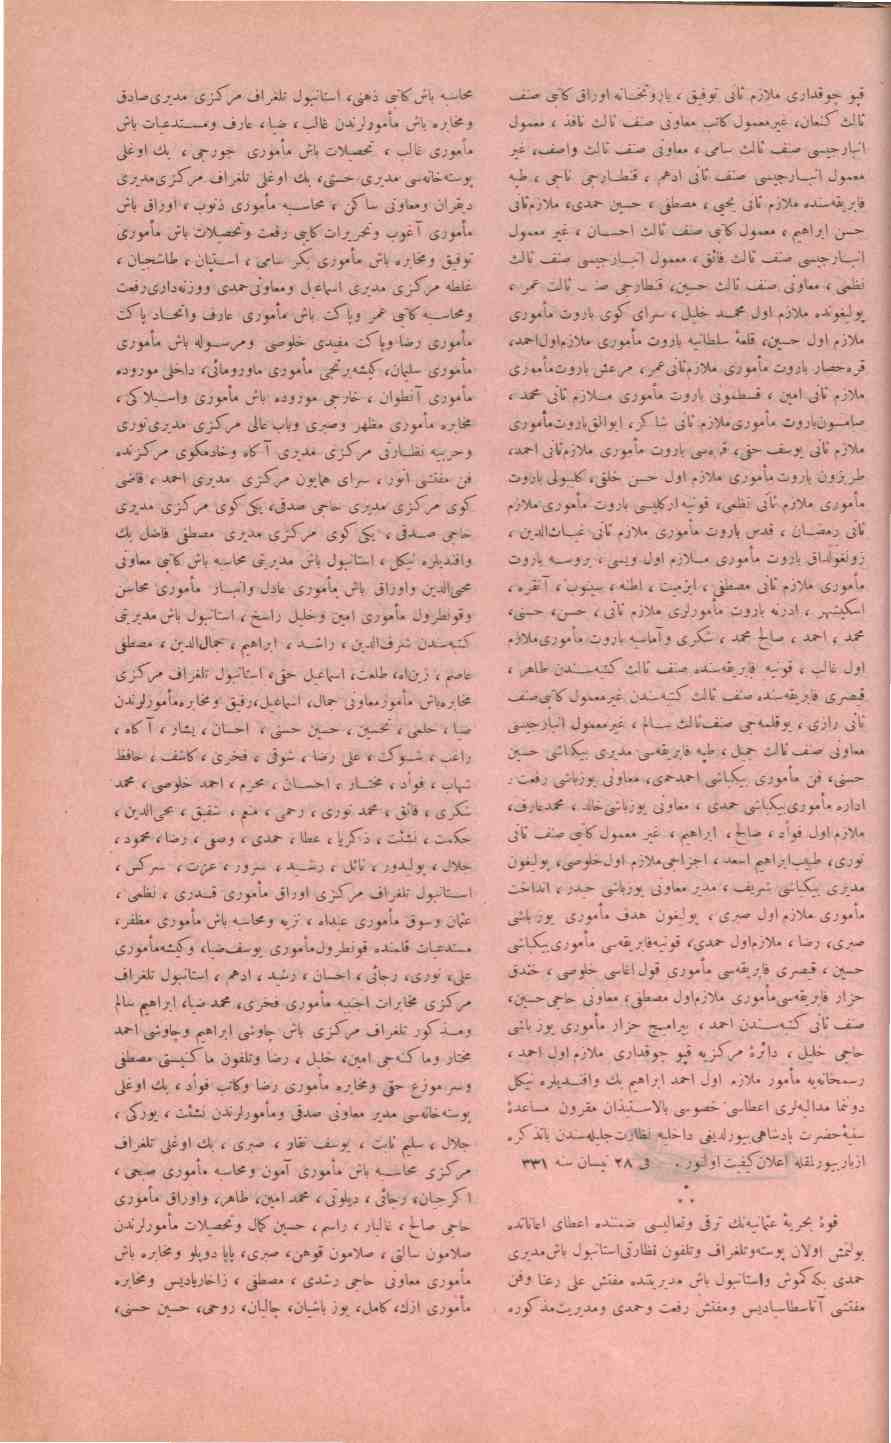 قپو چوقداری ملازم ثانی توفیق ، باروتخانه اوراق کاتبی صنف
ثالث کنعان، غیرمعمول کاتب معاونی صنف ثالث نافذ ، معمول
انبارجیسی صنف ثالث سامی ، معاونی صنف ثالث واصف، غیر
معمول انبارجیسی صنف ثانی ادهم ، قنطارجی ناجی ، طپه
فابریقه‌سنده ملازم ثانی یحیی ، مصطفی ، حسین حمدی، ملازم‌ثانی
حسن ابراهیم ، معمول کاتبی صنف ثالث احسان ، غیر معمول
انبارجیسی صنف ثالث فائق ، معمول انبارجیسی صنف ثالث
نظمی ، معاونی صنف ثالث حسین، قنطارجی صنف ثالث عمر ،
پولیغونده ملازم اول محمد خلیل ، سرای کوی باروت مأموری
ملازم اول حسین، قلعهٔ سلطانیه باروت مأموری ملازم‌اول‌احمد،
قره‌حصار باروت مأموری ملازم‌ثانی‌عمر، مرعش باروت‌مأموری
ملازم ثانی امین ، قسطمونی باروت مأموری ملازم ثانی محمد ،
صامسون‌باروت مأموری‌ملازم ثانی شاکر، ایوالق‌باروت‌مأموری
ملازم ثانی یوسف حقی، قره‌سی باروت مأموری ملازم‌ثانی احمد،
طربزون باروت مأموری ملازم اول حسن خلقی، کلیبولی باروت
مأموری ملازم ثانی نظمی، قونیه ارکلیسی باروت مأموری‌ملازم
ثانی رمضان ، قدس باروت مأموری ملازم ثانی غیاث‌الدین ،
زونغولداق باروت مأموری ملازم اول ویسی ، بروسه باروت
مأموری ملازم ثانی مصطفی ، ازمیت ، اطنه ، سینوب ، آنقره ،
اسکیشهر ، ادرنه باروت مأمورلری ملازم ثانی ، حسن، حسنی،
محمد ، احمد ، صالح محمد ، شکری و آماسیه باروت مأموری‌ملازم
اول غالب ، قونیه فابریقه‌سنده صنف ثالث کتبه‌سندن طاهر ،
قیصری فابریقه‌سنده صنف ثالث کتبه‌سندن غیرمعمول کاتبی‌صنف
ثانی رازی ، یوقلمه‌جی صنف‌ثالث سالم ، غیرمعمول انبارجیسی
معاونی صنف ثالث جمیل ، طپه فابریقه‌سی مدیری بیکباشی حسین
حسنی، فن مأموری بیکباشی احمدحمدی، معاونی یوزباشی رفعت ،
اداره مأموری‌بیکباشی حمدی ، معاونی یوزباشی‌خالد ، محمدعارف،
ملازم‌اول فوأد ، صالح ، ابراهیم ، غیر معمول کاتبی صنف ثانی
نوری، طبیب‌ابراهیم اسعد ، اجزاجی‌ملازم اول‌خلوصی، پولیغون
مدیری بیکباشی شریف ، مدیر معاونی یوزباشی حیدر ، انداخت
مأموری ملازم اول صبری ، پولیغون هدف مأموری یوزباشی
صبری، رضا ، ملازم‌اول حمدی، قونیه‌فابریقه‌سی مأموری‌بیکباشی
حسین ، قیصری فابریقه‌سی مأموری قول‌اغاسی خلوصی ، خندق
حزار فابریقه‌سی‌مأموری ملازم‌اول مصطفی، معاونی حاجی‌حسین،
صنف ثانی کتبه‌سندن احمد ، حزار مأموری یوزباشی
حاجی خلیل ، دائرهٔ مرکزیه قپو چوقداری ملازم اول احمد ،
رسمخانه‌یه مأمور ملازم اول احمد ابراهیم بك وافندیلره نیکل
دونما مدالیه‌لری اعطاسی خصوصی بالاستیذان مقرون مساعدهٔ
سنیهٔ حضرت پادشاهی بیورلدیغی داخلیه نظارت جلیله‌سندن باتذکره
ازبار بیورلمقله اعلان کیفیت اولنور . فی ٢٨ نیسان سنه ٣٣١
*
* *
قوهٔ بحریهٔ عثمانیه‌نك ترقی وتعالیسی ضمننده اعطای اعاناتده
بولنمش اولان پوسته‌وتلغراف وتلفون نظارتی‌استانبول باش‌مدیری
حمدی بکه کموش واستانبول باش مدیریتنده مفتش علی رضا وفن
مفتشی آناسطاسیادیس ومفتش رفعت وحمدی ومدیریت‌مذکوره
محاسبه باش‌کاتبی ذهنی، استانبول تلغراف مرکزی مدیری‌صادق
ومخابره باش مأمورلرندن غالب ، ضیا ، عارف ومستدعیات باش
مأموری غالب ، تحصیلات باش مأموری جورجی ، بك اوغلی
پوسته‌خانه‌سی مدیری حسنی، بك اوغلی تلغراف مرکزی‌مدیری
دیقران ومعاونی ساکن ، محاسبه مأموری ذنوب ، اوراق باش
مأموری آغوب وتحریرات‌کاتبی رفعت وتحصیلات باش مأموری
توفیق ومخابره باش مأموری بکر سامی ، استپان ، طاشجیان ،
غلطه مرکزی مدیری اسماعیل ومعاونی‌حمدی ووزنه‌داری‌رفعت
ومحاسبه‌کاتبی عمر وپاکت باش مأموری عارف واتحاد پاکت
مأموری رضا وپاکت مقیدی خلوصی ومرسوله باش مأموری
مأموری سلیمان، کیشه‌برنجی مأموری ماورومانی، داخلی موروده
مأموری آنطوان ، خارجی موروده باش مأموری واسیلاکی ،
مخابره مأموری مظهر وصبری وباب عالی مرکزی مدیری‌نوری
وحربیه نظارتی مرکزی مدیری آکاه وخادمکوی مرکزنده
فن مفتشی انور ، سرای همایون مرکزی مدیری احمد ، قاضی
کوی مرکزی مدیری حاجی صدقی، یکی کوی مرکزی مدیری
حاجی صدقی ، یکی کوی مرکزی مدیری مصطفی فاضل بك
وافندیلره نیکل ، استانبول باش مدیریتی محاسبه باش کاتبی معاونی
محی‌الدین واوراق باش مأموری عادل وانبار مأموری محاسن
وقونطرول مأموری امین وخلیل راسخ ، استانبول باش مدیریتی
کتبه‌سندن شرف‌الدین ، راشد ، ابراهیم ، جمال‌الدین ، مصطفی
عاصم ، طلعت، اسماعیل حقی، استانبول تلغراف مرکزی
مخابره‌باش مأمورمعاونی جمال، اسماعیل،رفیق ومخابره‌مأمورلرندن
ضیا ، حلمی ، تحسین ، حسین حسنی ، احسان ، بشار ، آکاه ،
راغب ، شوکت ، علی رضا ، شوقی ، فخری ، کاشف ، حافظ
شهاب ، فوأد ، مختار ، احسان ، محرم ، احمد خلوصی ، محمد
شکری ، فائق ، محمد نوری ، رحمی ، منیر ، شفیق ، محی‌الدین ،
حکمت ، نشئت ، ذکریا ، عطا ، حمدی ، وصفی ، رضا ، محمود ،
جلال ، پولیدور ، نائل ، رشید ، سرور ، عزت ، سرکس ،
استانبول تلغراف مرکزی اوراق مأموری قدری ، نظمی ،
عثمان وسوق مأموری عبداه ، نزیه ومحاسبه باش مأموری مظفر،
مستدعیات قلمنده قونطرول‌مأموری یوسف‌ضیا، وکیشه‌مأموری
علی، نوری، رجائی ، احسان ، رشید ، ادهم ، استانبول تلغراف
مرکزی مخابرات اجنبیه مأموری فخری، محمد ضیا، ابراهیم سالم
ومذکور تلغراف مرکزی باش چاوشی ابراهیم وچاوشی احمد
مختار وماکنه‌جی امین، خلیل ، رضا وتلفون ماکنیستی مصطفی
وسر موزع حقی ومخابره مأموری رضا وکاتب فوأد ، بك اوغلی
پوسته‌خانه‌سی مدیر معاونی صدقی ومأمورلرندن نشئت ، یورکی ،
جلال ، سلیم ثابت ، یوسف نقار ، صبری ، بك اوغلی تلغراف
مرکزی محاسبه باش مأموری آمون ومحاسبه مأموری صبحی ،
اکرجیان، رجائی ، دیلونی ، محمد امین، طاهر، واوراق مأموری
حاجی صالح ، غالبار ، راسم، حسین کمال وتحصیلات مأمورلرندن
صلامون سالتی ، صلامون قوهن، صبری، پاپا دوپلو ومخابره باش
مأموری معاونی حاجی رشدی ، مصطفی ، زاخاریادیس ومخابره
مأموری ازك، کامل، بوزباشیان، چالیان، روحی، حسین حسنی،